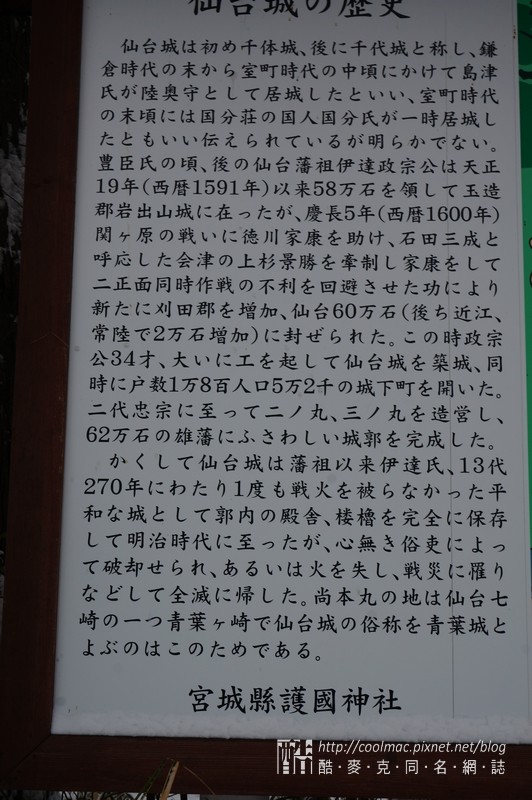 仙台城の歴史
仙台城は初め千体城、後に千代城と称し、鎌
倉時代の末から室町時代の中頃にかけて島津
氏が陸奥守として居城したといい、室町時代
の末頃には国分荘の国人国分氏が一時居城し
たともいい伝えられているが明らかでない。
豊臣氏の頃、後の仙台藩祖伊達政宗公は天正
19年(西暦1591年)以来58万石を領して玉造
郡岩出山城に在ったが、慶長5年(西暦1600年)
関ヶ原の戦いに徳川家康を助け、石田三成と
呼応した会津の上杉景勝を牽制し家康をして
二正面同時作戦の不利を回避させた功により
新たに刈田郡を増加、仙台60万石(後ち近江、
常陸で2万石増加)に封ぜられた。この時政宗
公34才、大いに工を起して仙台城を築城、同
時に戸数1万8百人口5万2千の城下町を開いた。
二代忠宗に至って二ノ丸、三ノ丸を造営し、
62万石の雄藩にふさわしい城郭を完成した。
かくして仙台城は藩祖以来伊達氏、13代
270年にわたり1度も戦火を被らなかった平
和な城として郭内の殿舎、楼櫓を完全に保存
して明治時代に至ったが、心無き俗吏によっ
て破却せられ、あるいは火を失し、戦災に罹り
などして全滅に帰した。尚本丸の地は仙台七
崎の一つ青葉ヶ崎で仙台城の俗称を青葉城と
よぶのはこのためである。
宮城縣護國神社
酷 http://coolmac.pixnet.net/blog
酷・麥・克・同・名・網・誌